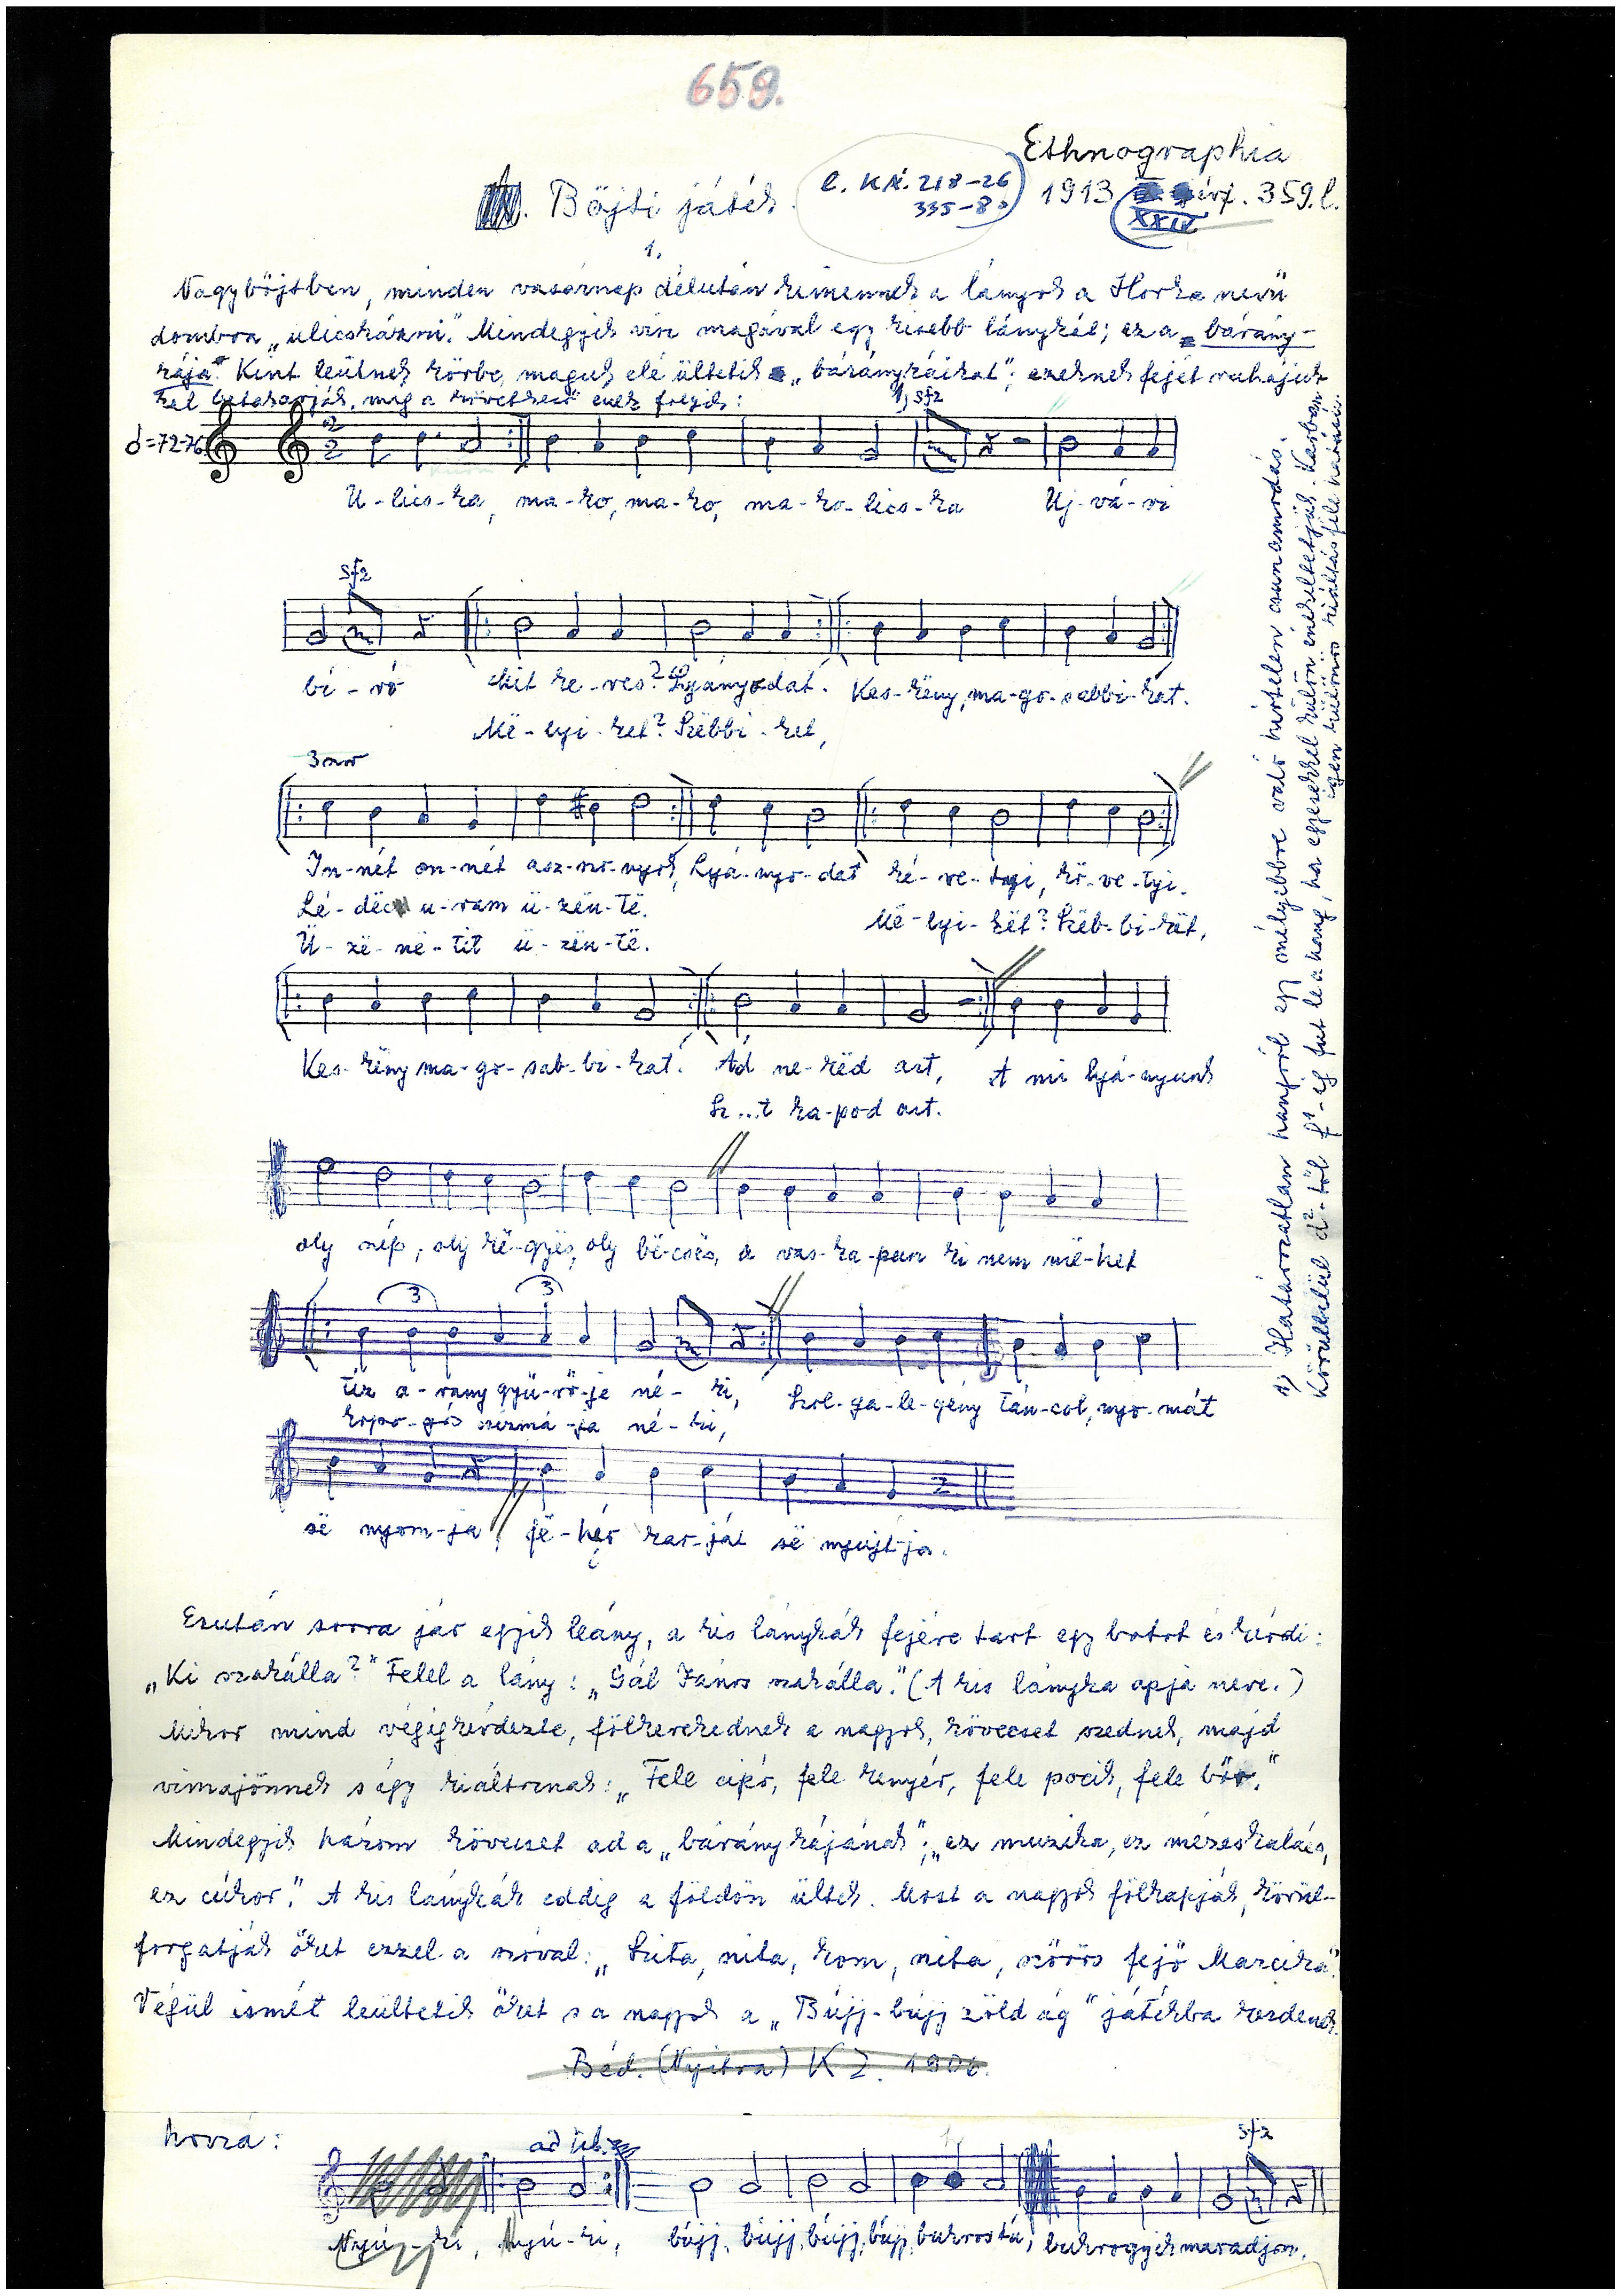 659.
Ethnographia
1913 XXIV évf. 359. l.
l. KÁ. 218-26
335-8
Böjti játék.
1.
Nagyböjtben, minden vasárnap délután kimennek a lányok a Horka nevü
dombra „ulicskázni." Mindegyik visz magával egy kisebb lánykát; ez a „bárány-
kája." Kint leülnek körbe, maguk elé ültetik „báránykáikat"; ezeknek fejét ruhájuk-
kal betakarják, míg a következő ének folyik:
1) sfz
=72-76
U-lics-ka, ma-ko, ma-ko, ma-ko-lics-ka Uj-vá-ri
sfz
bí-ró Kit ke-res? Lyányodat. Kes-kény, ma-go-sabbi-kat.
Më-lyi-ket? Szëbbi-ket,
3-szor
In-nét on-nét asz-szo-nyok, Lyá-nyo-dat ké-re-tyi, kö-ve-tyi.
Lé-dëc u-ram ü-zën-të. Më-lyi-két? Szëb-bi-két,
Ü-zë-në-tit ü-zën-të.
Kes-kény ma-go-sab-bi-kat. Ád ne-këd azt, A mi lyá-nyunk
Sz...t ka-po-d azt.
oly nép, olj kë-gyës, oly bë-csës, a vas-ka-pun ki nem më-het
3 3
tíz a-rany gyü-rö-je né-ki, Szol-ga-le-gény tán-col, nyo-mát
kopo-gós csizmá-ja né-ki,
së nyom-ja, fë-hér kar-ját së nyujt-ja.
1) Határozatlan hangról egy mélyebbre való hirtelen csunamodás.
Körülbelül d²-től f¹-ig fut le a hang, ha egyesekkel külön énekeltetjük. Karban
igen különös kiáltás féle hatású.
Ezután sorra jár egyik leány, a kis lánykák fejére tart egy botot és kérdi:
„Ki szakálla?" Felel a lány: „Gál János szakálla." (A kis lányka apja neve.)
Mikor mind végigkérdezte, fölkerekednek a nagyok, kövecset szednek, majd
visszajönnek s így kiáltoznak: „Fele cipó, fele kenyér, fele pocik, fele bőr."
Mindegyik három kövecset ad a „báránykájának"; „ez muzsika, ez mézeskalács,
ez cúkor." A kis lánykák eddig a földön ültek. Most a nagyok fölkapják, körül-
forgatják őket ezzel a szóval: „Szita, szita, kom, szita, szőrös fejő Marciká".
Végül ismét leültetik őket s a nagyok a „Bújj-bújj zöld ág" játékba kezdenek.
Béd. (Nyitra) K Z. 1906.
hozzá:
ad lib.
sfz
Nyú-ki, Nyú-ki, bújj, bújj, bújj, bújj, bukros tú, bukrogyik maradjon.